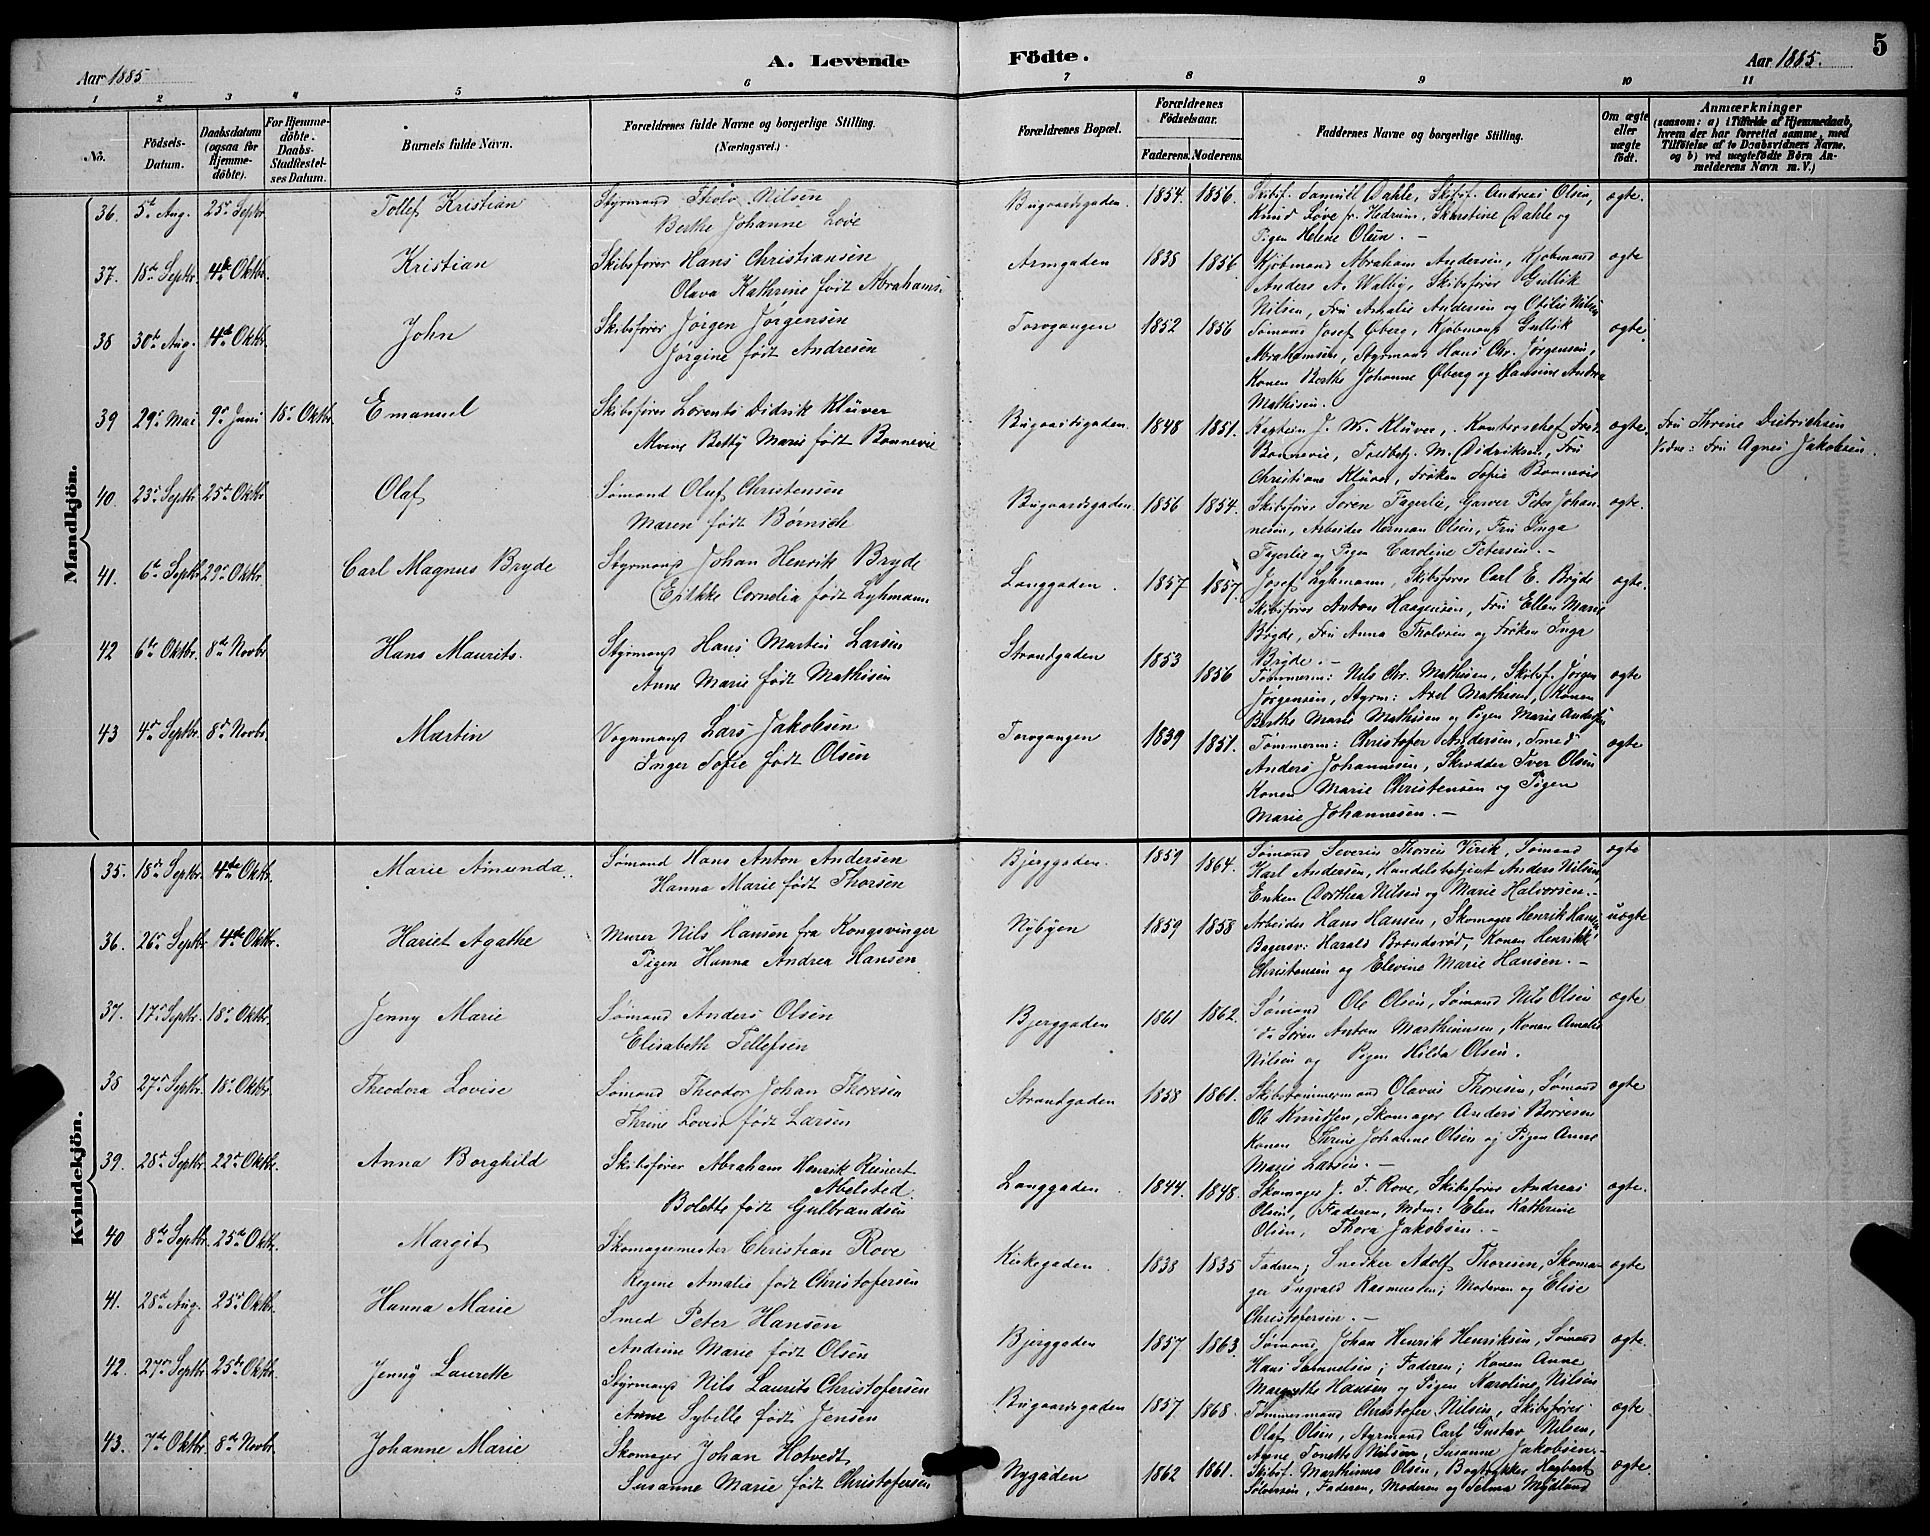 Aar 1885
A. Levende
Födte.
Aar 1885.
5
1 2 3 4 5 6 7 8 9 10 11
No.
Födsels-Datum.
Daabsdatum (ogsaa for Hjemme-döbte).
For Hjemme-döbte. Daabs-Stadfæstel-ses Datum.
Barnets fulde Navn.
Forældrenes fulde Navne og borgerlige Stilling. (Næringsvei.)
Forældrenes Bopæl.
Forældrenes Födselsaar.
Faderens. Moderens.
Faddernes Navne og borgerlige Stilling.
Om ægte eller uægte födt.
Anmærkninger
(saasom: a) i Tilfælde af Hjemmedaab, hvem der har forrettet samme, med Tilföielse af to Daabsvidners Navne, og b) ved uægtefödte Börn An-melderens Navn m. V.)
Mandkjön.
36. 5te Aug. 25de Septbr. Tollef Kristian Styrmand Tholv Nilsen Bugaardsgaden. 1854. 1856. Skibsf. Samuel Dahle, Skibsf. Andreas Olsen, ægte.
Berthe Johanne Löve Knud Löve fr. Hedrum, Kirstine Dahle og
Pigen Helene Olsen. —
37. 18de Septbr. 4de Oktbr. Kristian Skibsfører Hans Christiansen Armgaden 1838 1856. Kjöbmand Abraham Andersen, Kjöbmand ægte
Olava Kathrine født Abrahams. Anders A. Walby, Skibsfører Gullik
Nilsen, Fru Amalie Andersen og Otilie Nilsen
38 30de Aug. 4de Oktbr. John Skibsfører Jørgen Jørgensen Torvgangen 1852 1856 Sømand Josef Øberg, Kjöbmand Gullik ægte.
Jørgine født Andresen Abrahamsen, Styrmand Hans Chr. Jørgensen,
Konen Berthe Johanne Øberg og Hansine Andrea
Mathisen.
39 29de Mai 9de Juni 18de Oktbr. Emanuel Skibsfører Lorents Didrik Klüver Bugaardsgaden. 1848 1851. Kaptein J. W. Klüver, Kontorschef Fredr. ægte. Fru Thrine Dietrichsen
Alvene Betty Marie født Bonnevie Bonnevie, Toldbetj. M. Didriksen, Fru Vidne: Fru Agnes Jakobsen.
Christiane Klüver, Frøken Sofie Bonnevie
40. 23de Septbr. 25de Oktbr. Olaf Sømand Oluf Christensen Bugaardsgaden. 1856 1854. Skibsfører Søren Fagerlie, Garver Peter Johan- ægte.
Maren født Børnick nesen, Arbeider Herman Olsen, Fru Inga
Fagerlie og Pigen Caroline Petersen. —
41. 6te Septbr. 29de Oktbr. Carl Magnus Bryde Styrmand Johan Henrik Bryde Langgaden. 1857 1857. Josef Lyhmann, Skibsfører Carl E. Bryde ægte.
Cornelia født Lyhmann Skibsfører Anton Haagensen, Fru Ellen Marie
Bryde, Fru Anna Tholvsen og Frøken Inga
Bryde. —
42 6te Oktbr. 8de Novbr. Hans Maurits. Styrmand Hans Martin Larsen Strandgaden 1853 1856 Tømmerm: Nils Chr. Mathisen, Skibsf. Jørgen ægte
Anne Marie født Mathisen Jørgensen, Styrm: Axel Mathisen, Konen
Berthe Marie Mathisen og Pigen Marie Andersen
43 4de Septbr. 8de Novbr. Martin Vognmand Lars Jakobsen Torvgangen 1839 1851. Tømmerm: Christofer Andersen, Smed ægte
Inger Sofie født Olsen Anders Johannesen, Skrædder Iver Olsen
Konen Marie Christensen og Pigen
Marie Johannesen. —
Kvindekjön.
35. 18de Septbr. 4de Oktbr. Marie Amunda. Sømand Hans Anton Andersen Bjerggaden. 1859 1864. Sømand Severin Thorsen Virik, Sømand ægte
Hanna Marie født Thorsen Karl Andersen, Handelsbetjent Anders Nilsen
Enken Dorthea Nilsen og Marie Halvorsen. —
36. 26de Septbr. 4de Oktbr. Hariet Agathe Murer Nils Hansen fra Kongsvinger Nybyen 1859 1858 Arbeider Hans Hansen, Skomager Henrik Hansen uægte
Pigen Hanna Andrea Hansen Bagersv: Harald Brændsrød, Konen Henrikke
Christensen og Elevine Marie Hansen. —
37. 17de Septbr. 18de Oktbr. Jenny Marie Sømand Anders Olsen Bjerggaden 1861 1862. Sømand Ole Olsen, Sømand Nils Olsen ægte
Elisabeth Tellefsen do Søren Anton Marthinsen, Konen Amalie
Nilsen og Pigen Hilda Olsen.
38 27de Septbr. 18de Oktbr. Theodora Lovise Sømand Theodor Johan Thoresen Strandgaden 1858 1861. Skibstømmermand Olavus Thoresen, Sømand ægte
Thrine Lovise født Larsen Ole Knudsen, Skomager Anders Borresen
Konen Thrine Johanne Olsen og Pigen Anne
Marie Larsen. —
39. 28de Septbr. 22de Oktbr. Anna Borghild Skibsfører Abraham Henrik Reinert Langgaden 1844. 1848. Skomager J. F. Rove, Skibsfører Andreas ægte.
Abelsted. Olsen, Faderen, Mdm: Elen Kathrine
Bolette født Gulbrandsen Olsen, Thora Jakobsen. —
40 8de Septbr. 25de Oktbr. Margit Skomagermester Christian Rove Kirkegaden 1838 1835 Faderen, Snedker Adolf Thorsen, Skoma- ægte
Regine Amalie født Christofersen ger Ingvald Rasmussen; Moderen og Elise
Christofersen. —
41. 28de Aug. 25de Oktbr. Hanna Marie Smed Peter Hansen Bjerggaden 1857 1863. Sømand Johan Henrik Henriksen, Sømand ægte.
Andrine Marie født Olsen Hans Samuelsen; Faderen; Konen Anne
Margrethe Hansen og Pigen Karoline Nilsen
42. 27de Septbr. 25de Oktbr. Jenny Laurette Styrmand Nils Laurits Christofersen Bugaardsgaden 1857 1868. Tømmermand Christofer Nilsen, Skibsfører ægte.
Anne Sybille født Jensen Olaf Olsen, Styrmand Carl Gustav Nilsen,
Agne Tonette Nilsen, Susanne Jakobsen. —
43. 7de Oktbr. 8de Novbr. Johanne Marie Skomager Johan Hotvedt Nygaden 1862 1861. Skibsf. Marthinus Olsen, Bogtrykker Hagbart ægte.
Susanne Marie født Christofersen Solversen, Faderen, Moderen og Selma Mydland